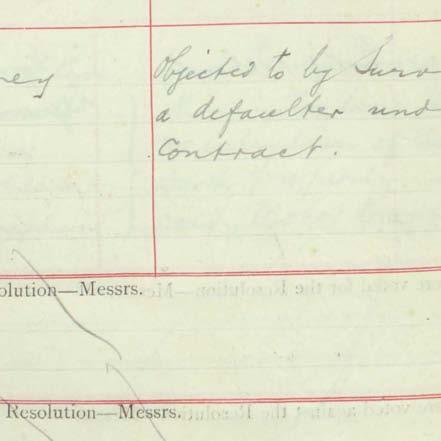 ney
Objected to by Surv
a defaulter und
Contract.
olution—Messrs.
Resolution—Messrs.